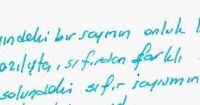 indeki bir sayının onluk b
azılışta, sıfırdan farklı
solundaki sıfır sayısının